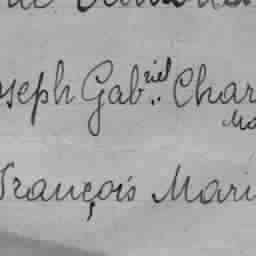 oseph Gabriel Char
Ma
François Mari